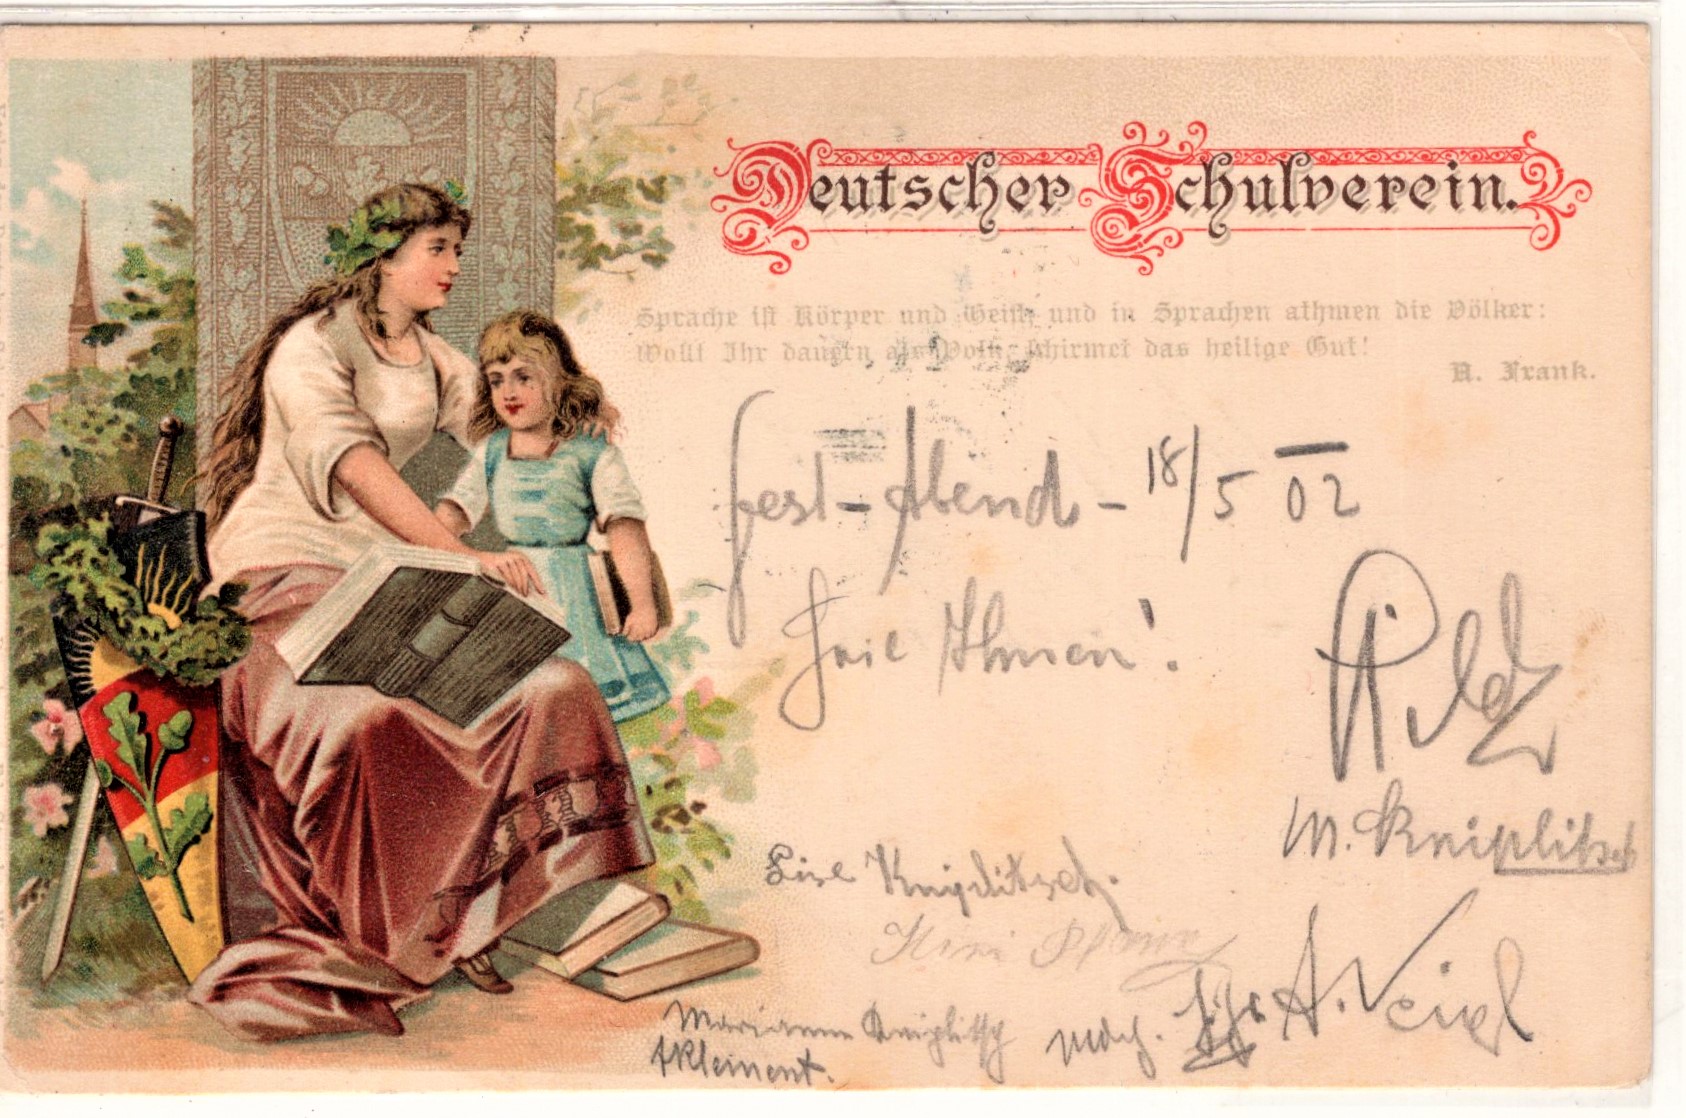 Deutscher Schulverein.
Sprache ist Körper und Geist und in Sprachen athmen die Völker:
Wollt Ihr dauern als Volk, schirmet das heilige Gut!
A. Frank.
Fest-Abend - 18/5 02
Heil Ihnen!
M. Kniplitsch
Lise Kniplitsch.
A. Veigl
Kniplitsch